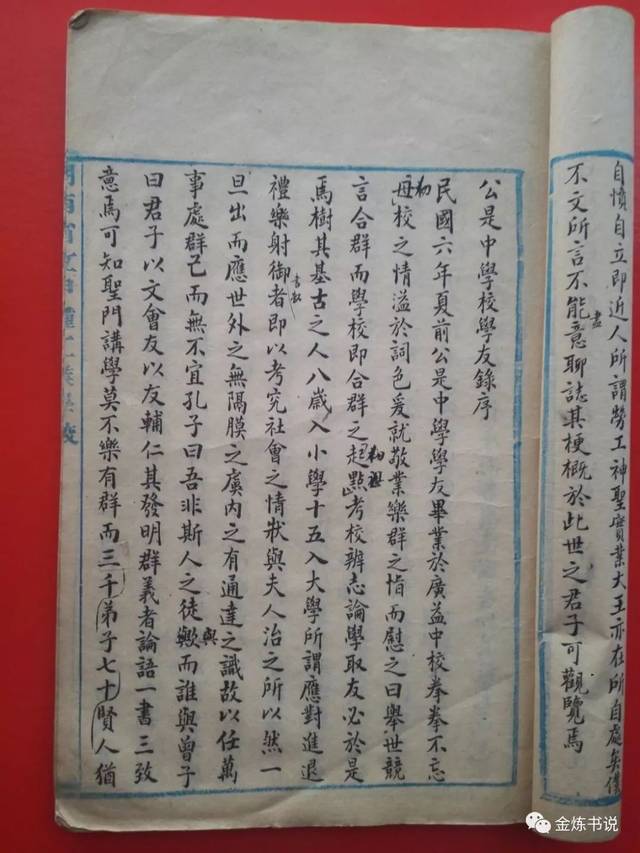 自憤自立即近人所謂勞工神聖實業大王亦在所自處矣僕
不文所言不能盡意聊誌其梗概於此世之君子可觀覽焉
公是中學校學友錄序
民國六年夏前公是中學學友畢業於廣益中校拳拳不忘
母初校之情溢於詞色爰就敬業樂群之恉而慰之曰舉世競
言合群而學校即合群之起點初祖考校辨志論學取友必於是
焉樹其基古之人八歲入小學十五入大學所謂應對進退
禮樂射御者書數即以考究社會之情狀與夫人治之所以然一
旦出而應世外之無隔膜之虞內之有通達之識故以任萬
事處群己而無不宜孔子曰吾非斯人之徒歟與而誰與曾子
曰君子以文會友以友輔仁其發明群義者論語一書三致
意焉可知聖門講學莫不樂有群而三千弟子七十賢人猶
金炼书说